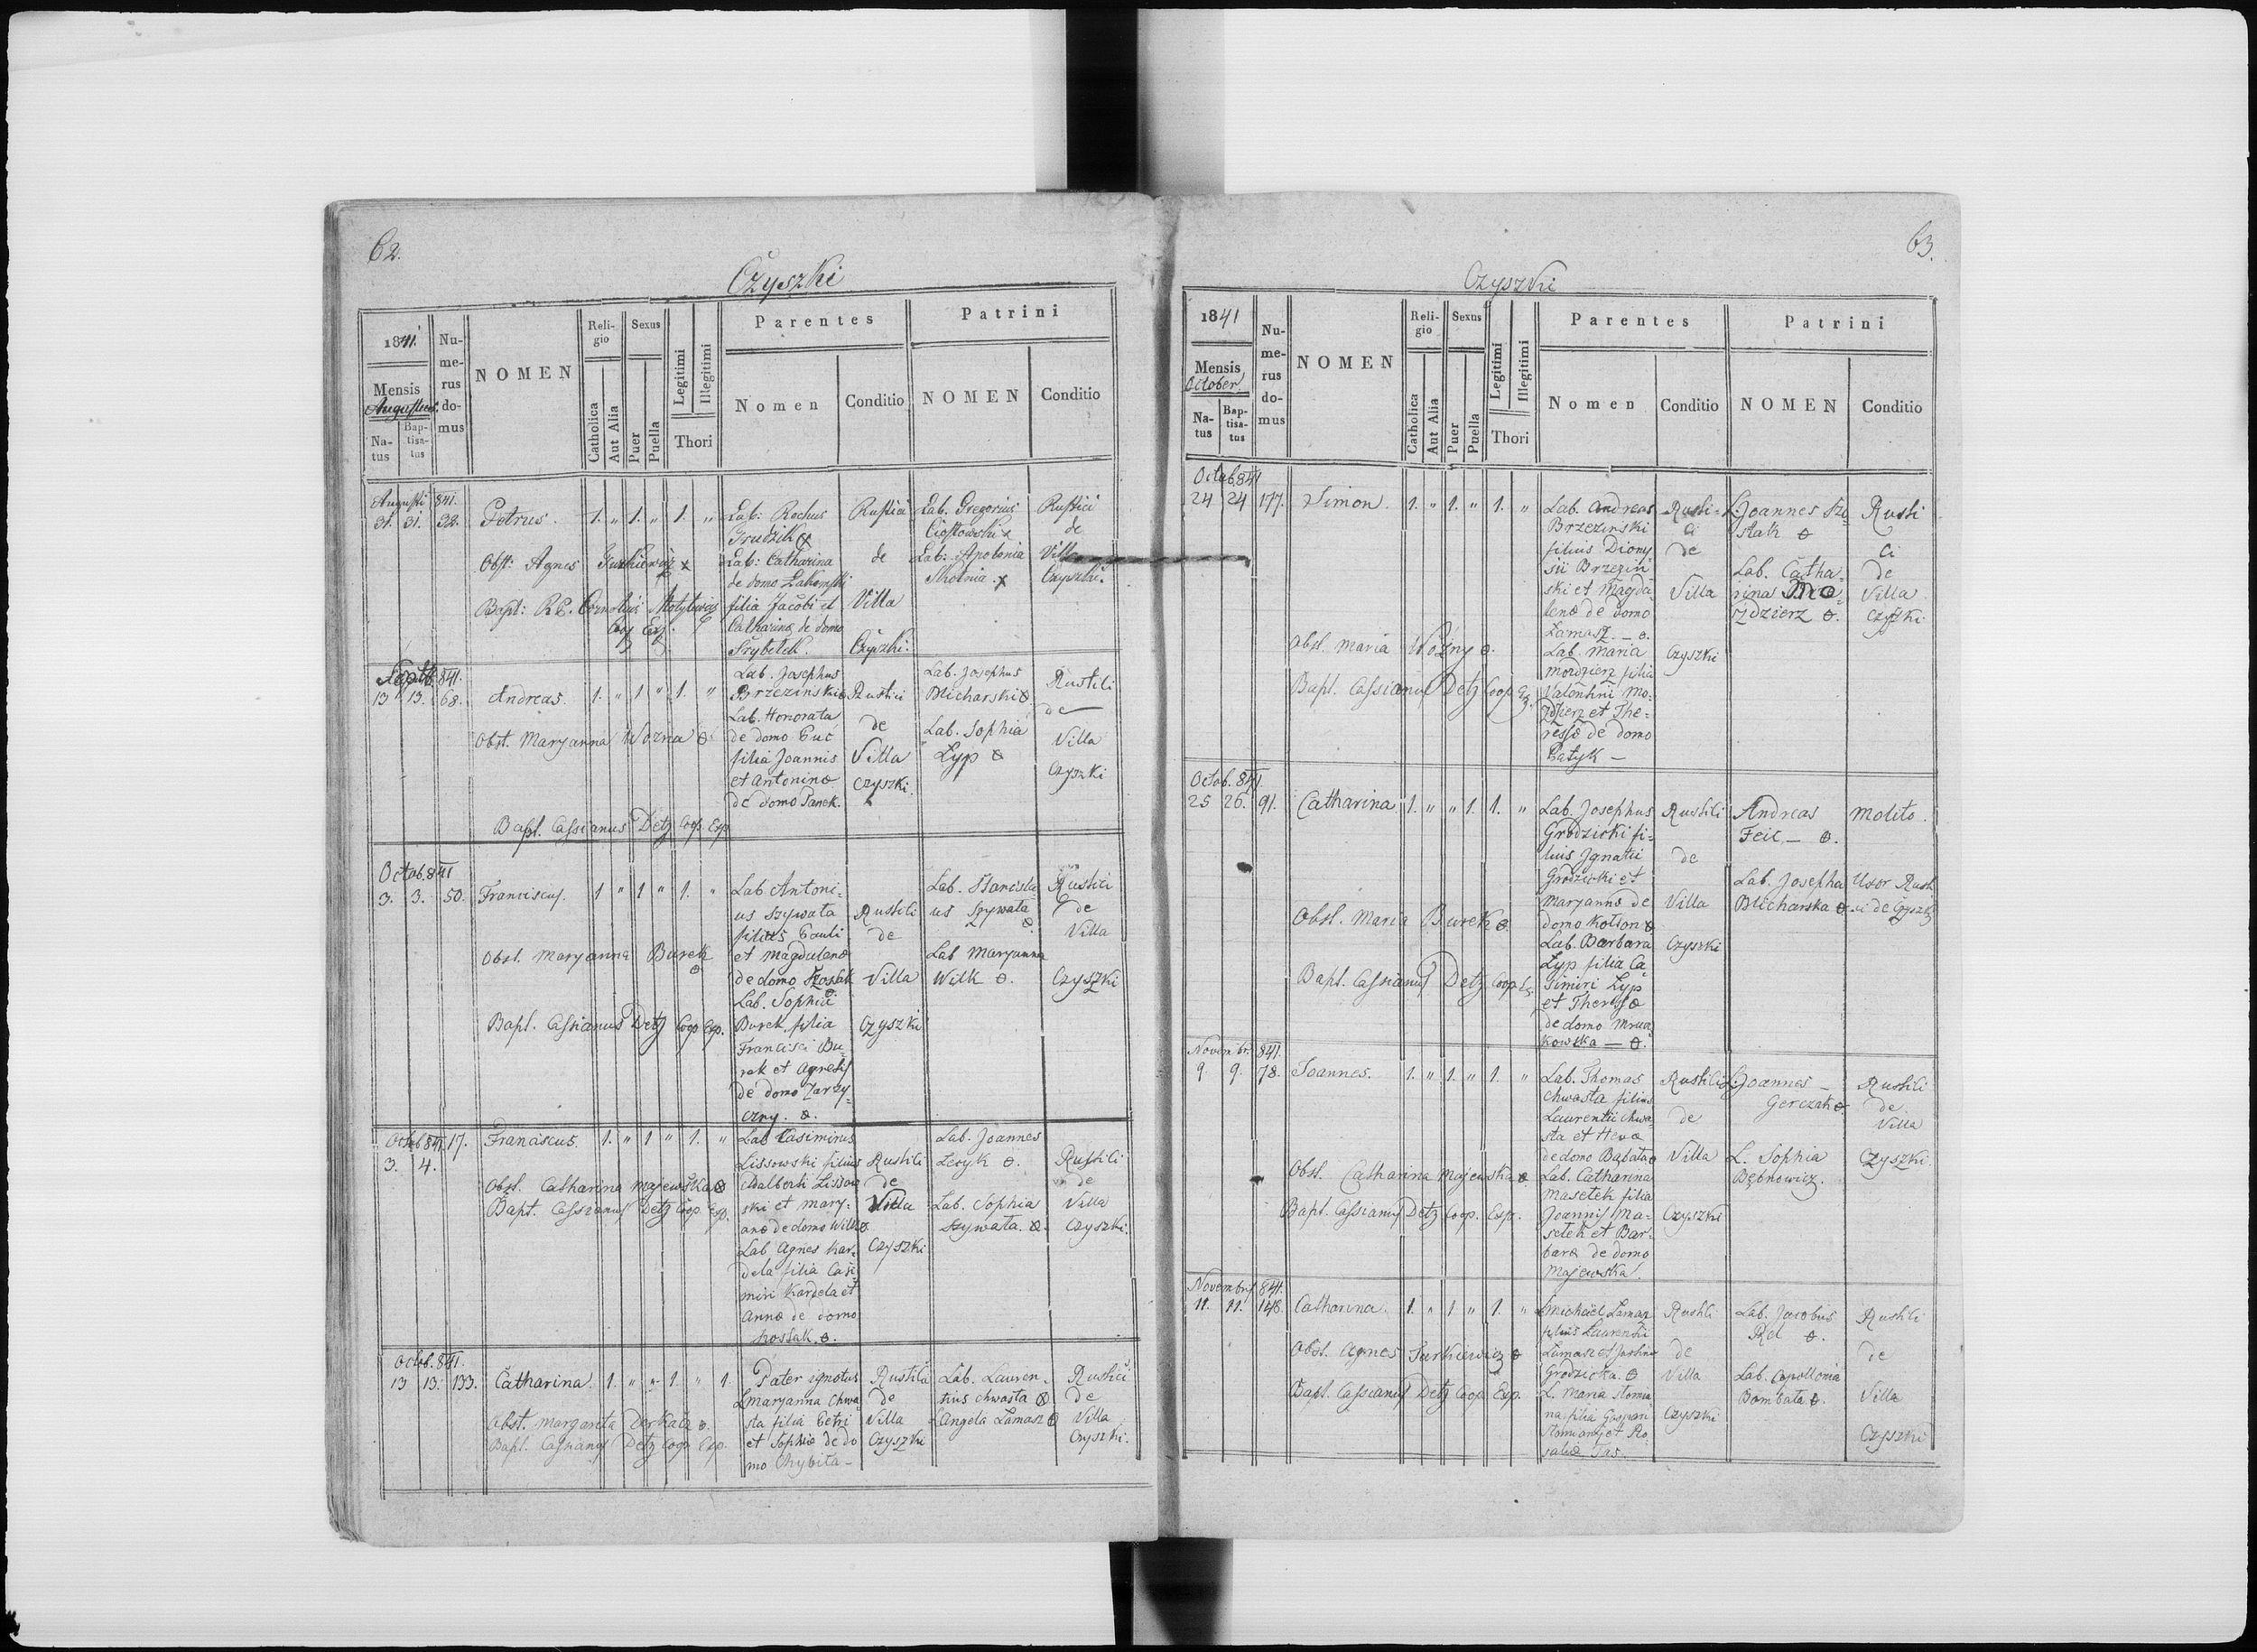 62.
Czyszki
1841.
Mensis
Augustus.
Na-
tus
Bap-
tisa-
tus
Nu-
me-
rus
do-
mus
NOMEN
Reli-
gio
Catholica
Aut Alia
Sexus
Puer
Puella
Legitimi
Illegitimi
Thori
Parentes
Nomen
Conditio
Patrini
NOMEN
Conditio
Augusti 841.
31. 31. 32. Petrus. 1. " 1. " 1. "
Obst: Agnes
Bapt: R.P. Cornelius
Lab: Rochus
Lab: Catharina
de domo
filia Jacobi et
Catharinæ de domo
Rustici
de
Villa
Czyszki.
Lab. Gregorius
Lab: Apolonia
Rustici
de
Villa
Czyszki.
Septb. 841.
13 13. 68. Andreas. 1. " 1 " 1. "
Obst. Maryanna Wozna
Bapt. Cassianus Detz Coop. Exp.
Lab. Josephus
Brzezinski
Lab. Honorata
de domo Puc
filia Joannis
et Antoninæ
de domo Panek.
Rustici
de
Villa
Czyszki.
Lab. Josephus
Blicharski
Lab. Sophia
Lyp
Rustici
de
Villa
Czyszki
Octob. 841
3. 3. 50. Franciscus. 1 " 1 " 1. "
Obst. Maryanna Burek
Bapt. Cassianus Detz Coop. Exp.
Lab Antoni-
us Szywata
filius Pauli
et Magdalenæ
de domo
Lab. Sophia
Burek filia
Francisci Bu-
rek et Agnetis
de domo Zarzy-
czny.
Rustici
de
Villa
Czyszki
Lab. Stanisla-
us Szywata
Lab Maryanna
Wilk
Rustici
de
Villa
Czyszki
Octob 841. 17. Franciscus. 1. " 1 " 1. "
3. 4.
Obst. Catharina Majewska
Bapt. Cassianus Detz Coop. Exp.
Lab Casimirus
Lissowski filius
Adalberti Lissow
ski et Mary-
anæ de domo Wilk
Lab Agnes Kar-
dela filia Casi-
miri Kardela et
Annæ de domo
Rustici
de
Villa
Czyszki
Lab. Joannes
Lab. Sophia
Szywata.
Rustici
de
Villa
Czyszki.
Octob. 841.
13 13. 133. Catharina. 1. " " 1. " 1.
Obst. Margareta Derkacz
Bapt. Cassianus Detz Coop Exp.
Pater ignotus
L Maryanna Chwa-
sta filia Petri
et Sophiæ de do
mo Chybita-
Rustica
de
Villa
Czyszki
Lab. Lauren-
tius Chwasta
L Angela Lamasz
Rustici
de
Villa
Czyszki.
63.
Czyszki
1841
Mensis
October
Na-
tus
Bap-
tisa-
tus
Nu-
me-
rus
do-
mus
NOMEN
Reli-
gio
Catholica
Aut Alia
Sexus
Puer
Puella
Legitimi
Illegitimi
Thori
Parentes
Nomen
Conditio
Patrini
NOMEN
Conditio
Octob 841
24 24 177. Simon. 1. " 1. " 1. "
Obst. Maria Woźny
Bapt. Cassianus Detz Coop
Lab. Andreas
Brzezinski
filius Diony
sii Brzezin
ski et Magda-
lenæ de domo
Lamasz.
Lab Maria
Mozdzierz filia
Valentini Mo-
zdzierz et The-
ressæ de domo
Patyk
Rusti-
ci
de
Villa
Czyszki
L. Joannes
Lab. Catha-
rina
Rusti
ci
de
Villa
Czyszki
Octob. 841.
25 26. 91. Catharina 1. " " 1. 1. "
Obst. Maria Burek
Bapt. Cassianus Detz Coop
Lab. Josephus
Grodzicki fi-
lius Ignatii
Grodzicki et
Maryannæ de
domo Kolton
Lab. Barbara
Lyp filia Ca-
simiri Lyp
et Theressæ
de domo Mrua-
kowska
Rustici
de
Villa
Czyszki
Andreas
Feic
Lab. Josepha
Blicharska
Molito.
Uxor Rusti
ci de Czyszki
Novembr. 841.
9 9. 78. Joannes. 1. " 1. " 1. "
Obst. Catharina Majewska
Bapt. Cassianus Detz Coop. Exp.
Lab. Thomas
Chwasta filius
Laurentii Chwa-
sta et Hevæ
de domo Bąbata
Lab. Catharina
Masetek filia
Joannis Ma-
setek et Bar-
baræ de domo
Majewska.
Rustici
de
Villa
Czyszki
L. Joannes
Gerczak
L. Sophia
Bębnowicz.
Rustici
de
Villa
Czyszki
Novembris 841.
11. 11. 148. Catharina. 1. " 1. " 1. "
Obst. Agnes Surkiewicz
Bapt. Cassianus Detz Coop. Exp.
L Michael Lamasz
filius Laurentii
Lamasz et Justinæ
Grodzicka.
L. Maria Slomia
na filia Gaspari
Slomiany et Ro-
saliæ
Rustici
de
Villa
Czyszki
Lab. Jacobus
Rel
Lab. Apollonia
Bombata
Rustici
de
Villa
Czyszki